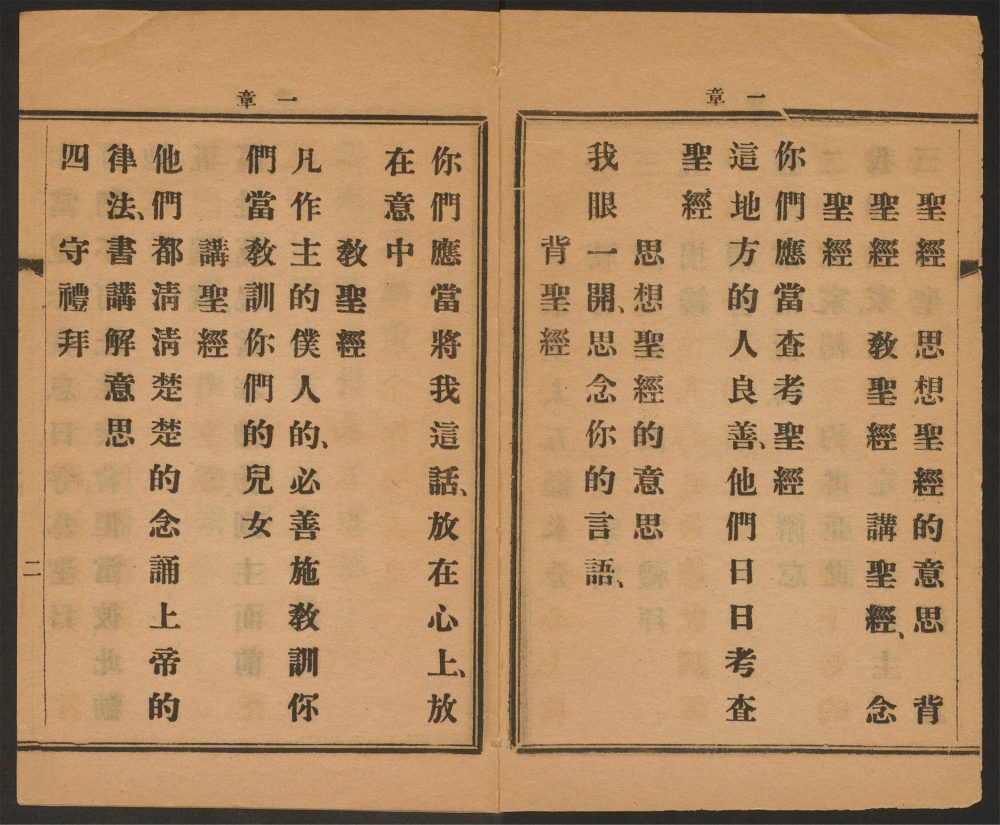 章一
聖經　思想聖經的意思　背
聖經　教聖經　講聖經、念
聖經
你們應當查考聖經
這地方的人良善、他們日日考查
聖經
思想聖經的意思
我眼一開、思念你的言語、
背聖經
章一
你們應當將我這話、放在心上、放
在意中
教聖經
凡作主的僕人的、必善施教訓你
們當教訓你們的兒女
講聖經
他們都清清楚楚的念誦上帝的
律法、書講解意思
四　守禮拜
二